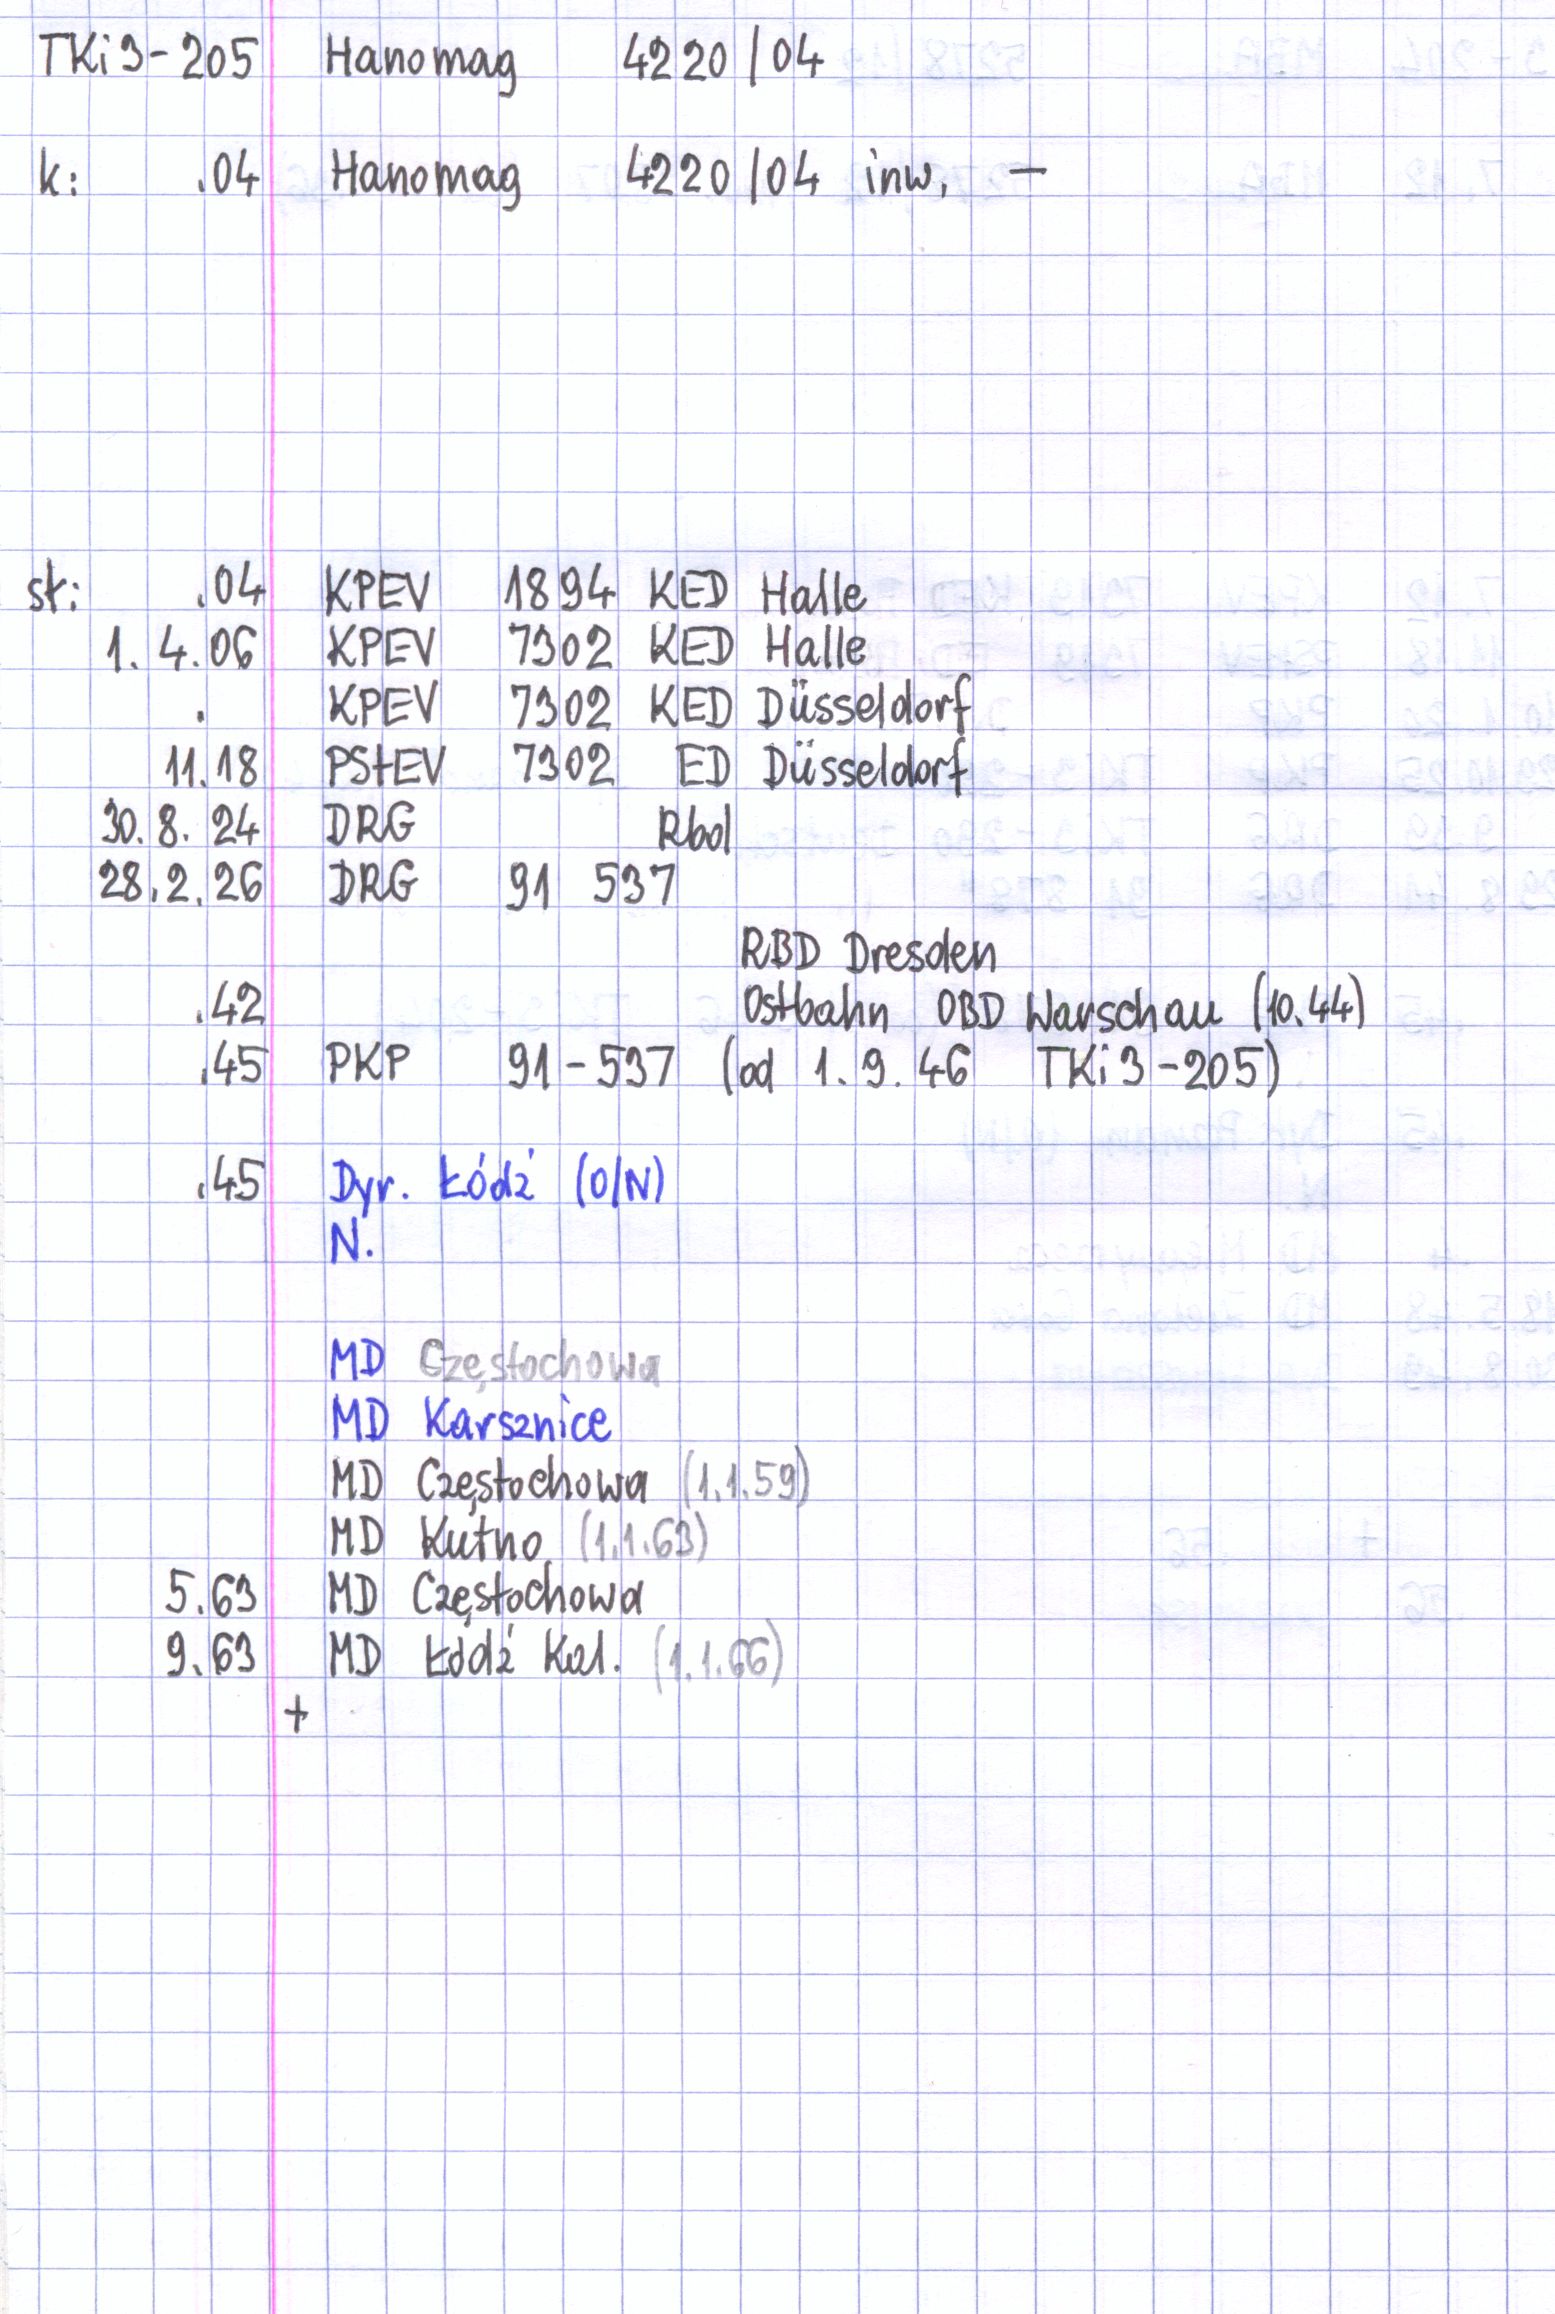 TKi 3-205 Hanomag 4220/04
k: .04 Hanomag 4220/04 inw. —
st: .04 KPEV 1894 KED Halle
1.4.06 KPEV 7302 KED Halle
. KPEV 7302 KED Düsseldorf
11.18 PStEV 7302 ED Düsseldorf
30.8.24 DRG Rbd
28.2.26 DRG 91 537
RBD Dresden
.42 Ostbahn OBD Warschau (10.44)
.45 PKP 91-537 (od 1.9.46 TKi 3-205)
.45 Dyr. Łódź (O/N)
N.
MD Częstochowa
MD Karsznice
MD Częstochowa (1.1.59)
MD Kutno (1.1.63)
5.63 MD Częstochowa
9.63 MD Łódź Kal. (1.1.66)
+